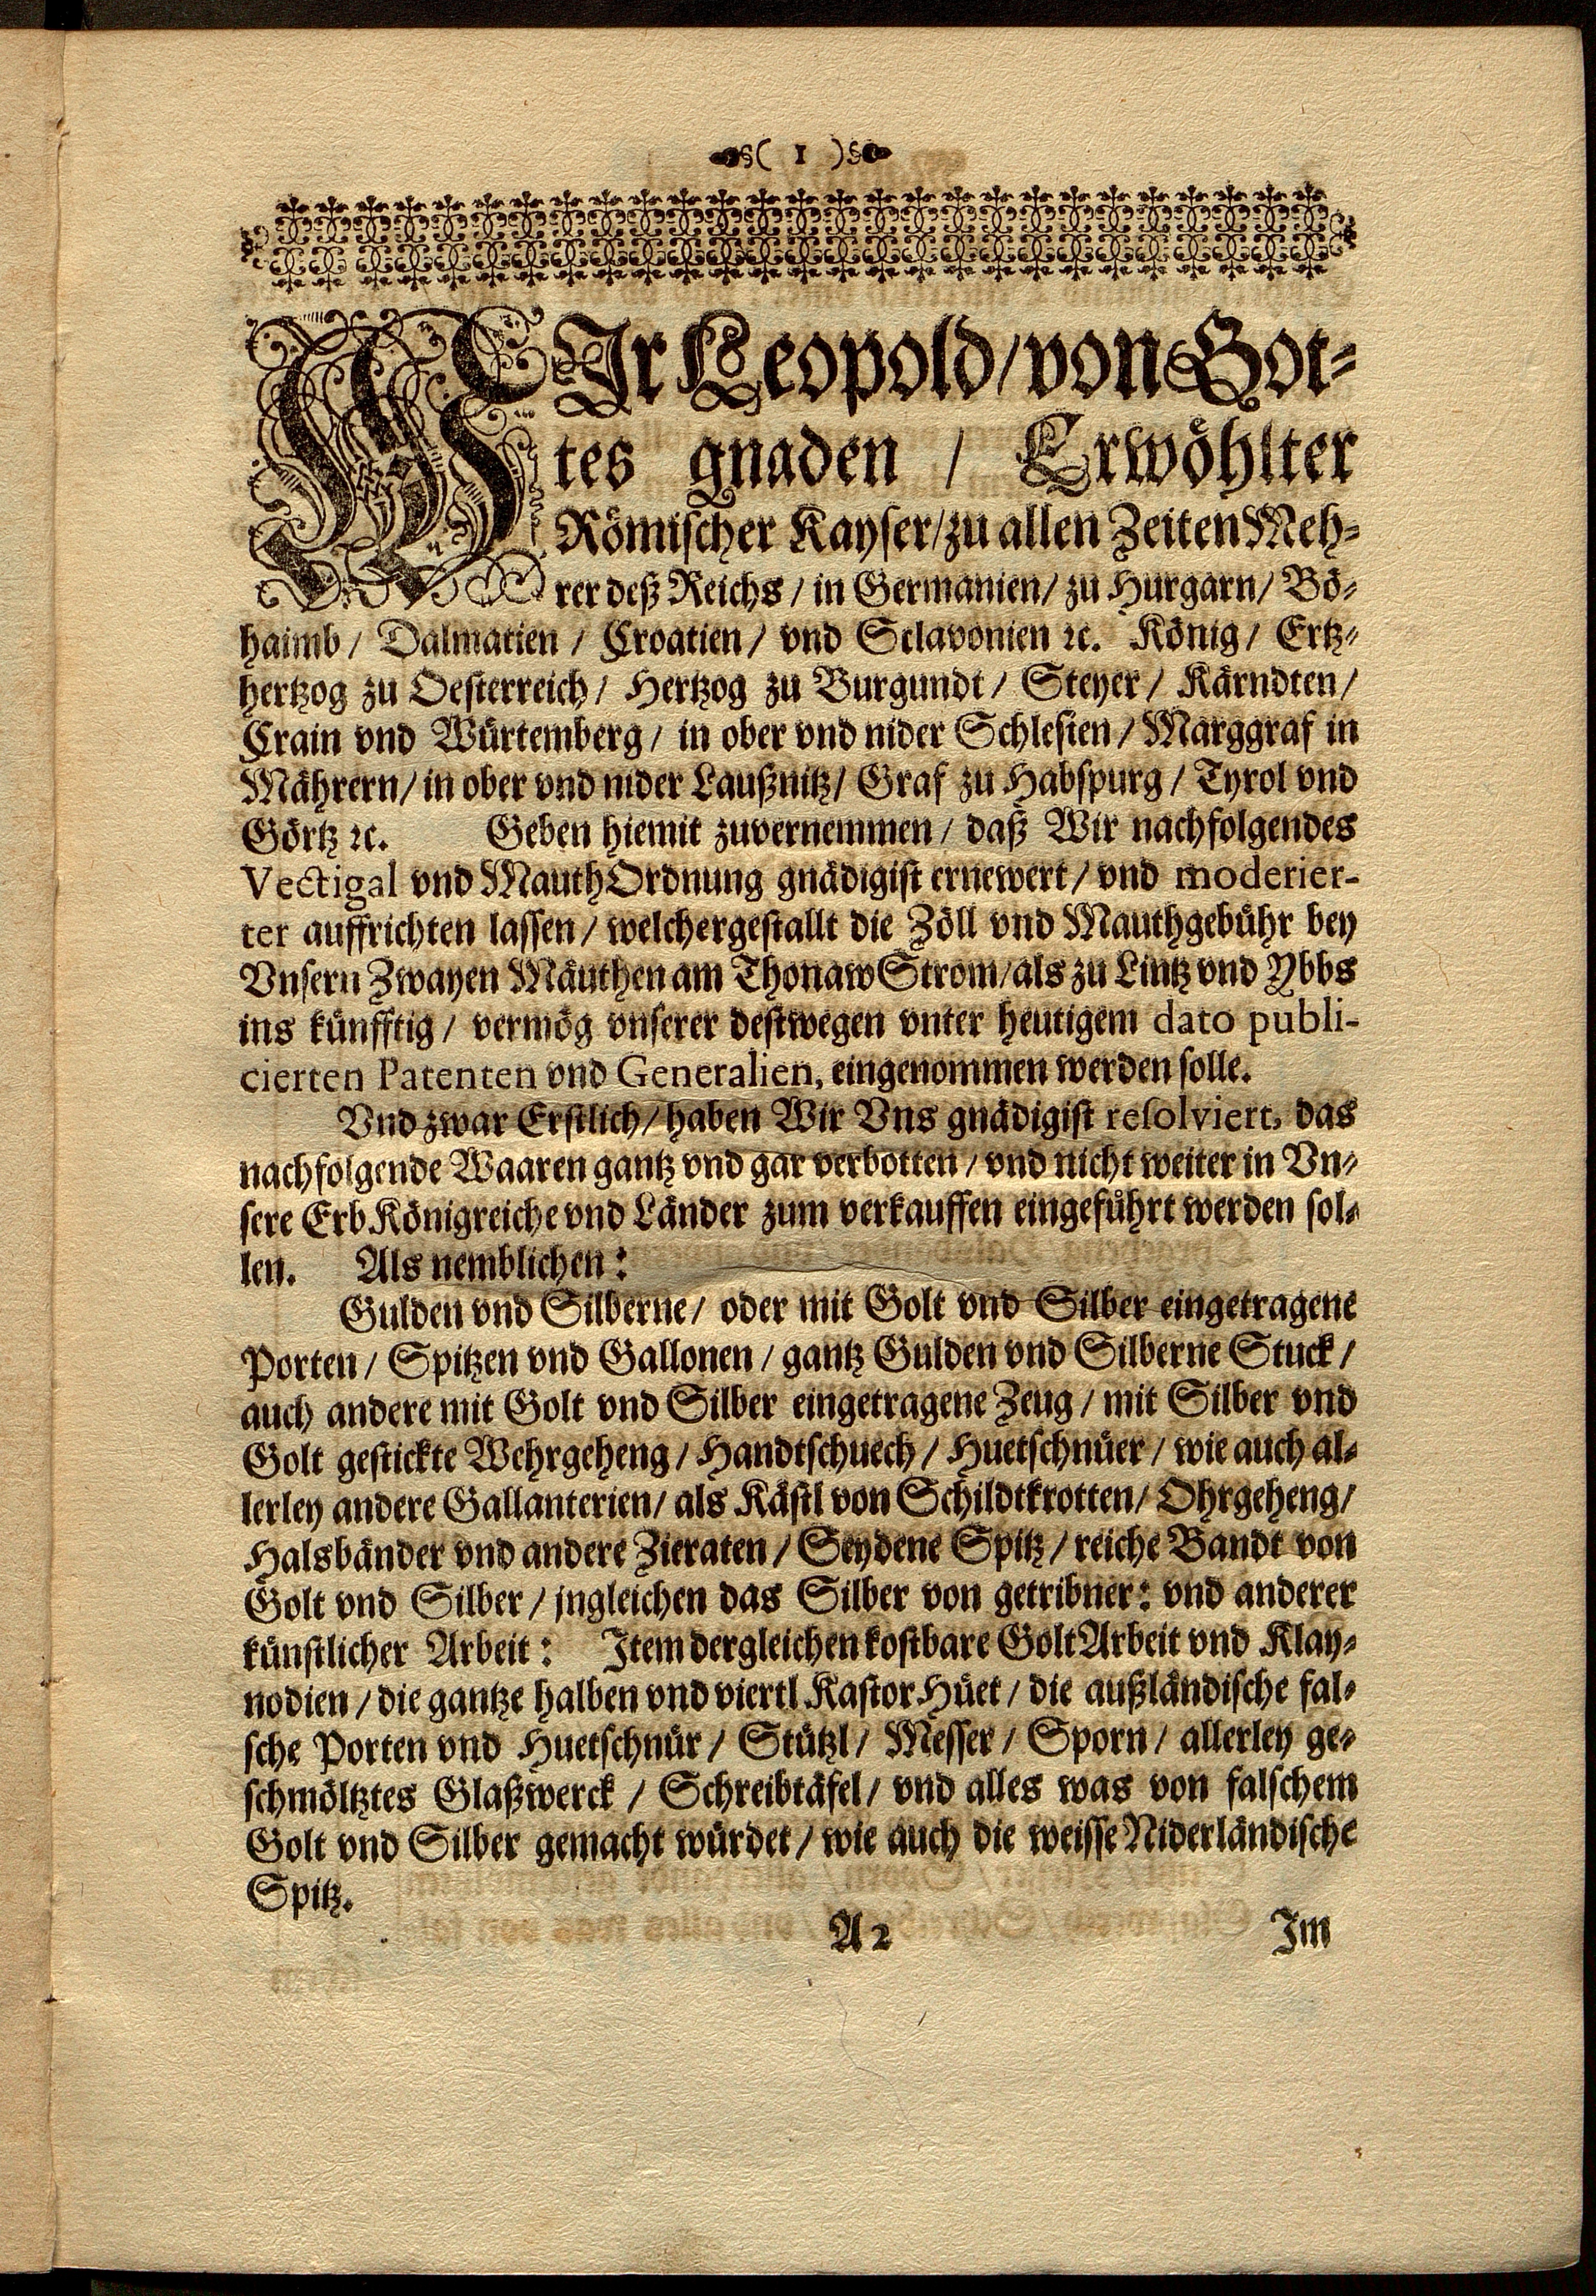 ( 1 )
WIr Leopold/ von Got-
tes gnaden / Erwöhlter
Römischer Kayser/ zu allen Zeiten Meh-
rer deß Reichs / in Germanien/ zu Hurgarn/ Bö-
haimb / Dalmatien / Croatien / vnd Sclavonien ꝛc. König / Ertz-
hertzog zu Oesterreich / Hertzog zu Burgundt / Steyer / Kärndten /
Crain vnd Würtemberg / in ober vnd nider Schlesien / Marggraf in
Mährern / in ober vnd nider Laußnitz / Graf zu Habspurg / Tyrol vnd
Görtz ꝛc. Geben hiemit zuvernemmen / daß Wir nachfolgendes
Vectigal vnd Mauth Ordnung gnädigist ernewert / vnd moderier-
ter auffrichten lassen / welchergestallt die Zöll vnd Mauthgebühr bey
Vnsern Zwayen Mäuthen am Thonaw Strom / als zu Lintz vnd Ybbs
ins künfftig / vermög vnserer destwegen vnter heutigem dato publi-
cierten Patenten vnd Generalien, eingenommen werden solle.
Vnd zwar Erstlich / haben Wir Vns gnädigist resolviert, das
nachfolgende Waaren gantz vnd gar verbotten / vnd nicht weiter in Vn-
sere Erb Königreiche vnd Länder zum verkauffen eingeführt werden sol-
len. Als nemblichen:
Gulden vnd Silberne / oder mit Golt vnd Silber eingetragene
Porten / Spitzen vnd Gallonen / gantz Gulden vnd Silberne Stuck /
auch andere mit Golt vnd Silber eingetragene Zeug / mit Silber vnd
Golt gestickte Wehrgeheng / Handtschuech / Huetschnüer / wie auch al-
lerley andere Gallanterien / als Kästl von Schildtkrotten / Ohrgeheng /
Halsbänder vnd andere Zieraten / Seydene Spitz / reiche Bandt von
Golt vnd Silber / jngleichen das Silber von getribner: vnd anderer
künstlicher Arbeit: Item dergleichen kostbare Golt Arbeit vnd Klay-
nodien / die gantze halben vnd viertl Kastor Hüet / die außländische fal-
sche Porten vnd Huetschnür / Stützl / Messer / Sporn / allerley ge-
schmöltztes Glaßwerck / Schreibtäfel / vnd alles was von falschem
Golt vnd Silber gemacht würdet / wie auch die weisse Niderländische
Spitz.
A 2 Im